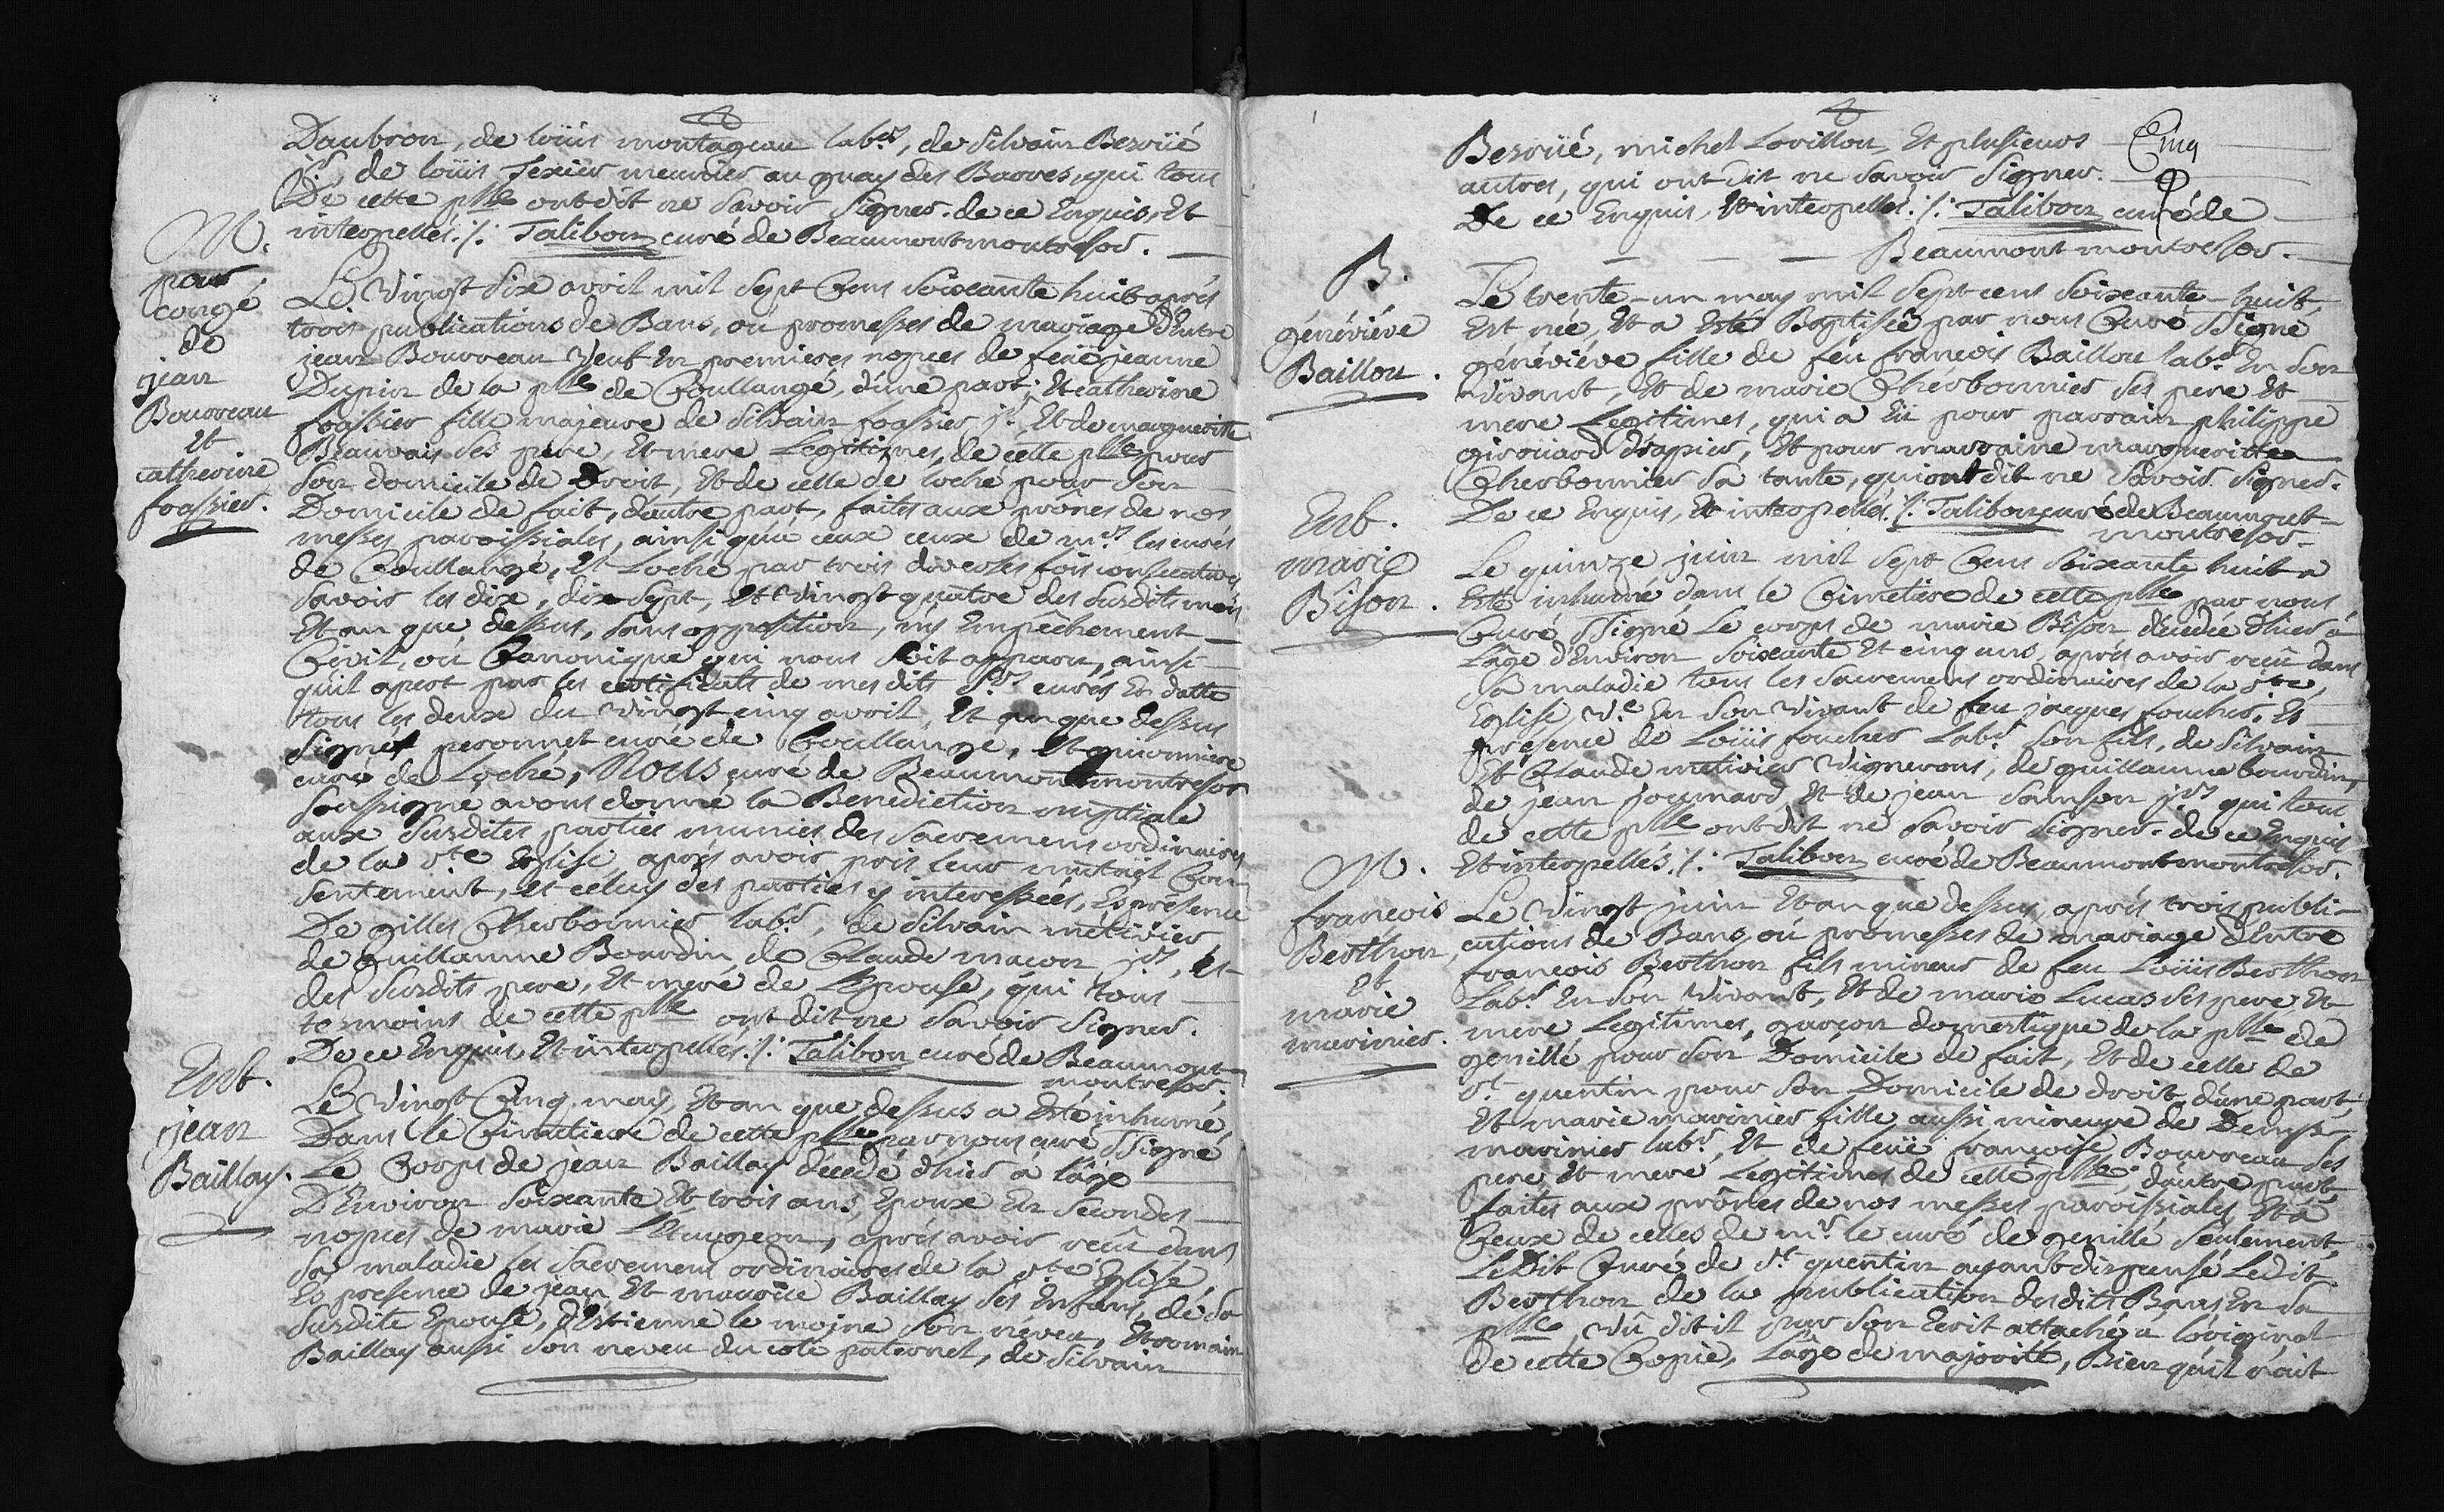 Daubron, de loüis montageau lab.r, de Silvain Beroüé
j.r, de loüis Texier meunier au quay des Barres, qui tous
De cette plle ont dit ne Savoir Signer. de ce Enquis, Et
interpellés ./. Talibon curé de Beaumontmontresor.
M.
pour
congé
de
jean
Bourreau
et
catherine
fassier.
Le Vingt Six avril mil Sept Cens Soixante huit aprés
trois publications de Bans, ou promesses de mariage d'Entre
jean Bourreau Veuf En premieres nopces de feüe jeanne
Dupin de la plle de Coullangé, d'une part; Et catherine
fassier fille majeure de Silvain fassier j.r Et de marguerite
Beauvais Ses pere, Et mere Legitimes, de cette plle pour
Son domicile de Droit, Et de celle de loché pour Son
Domicile de fait, d'autre part, faites aux prônes de nos
messes paroissiales, ainsi qu'à ceux ceux de m.rs les curés
de Coullangé, Et Loché par trois diverses fois consecutives
Savoir les dix, dix Sept, Et Vingt quatre des Susdits mois
Et an que dessus, Sans opposition, ny Empêchement
Civil, ou Canonique qui nous Soit apparu, ainsi
qu'il apert par les certificats de mes dits S.rs curés En datte
tous les deux du Vingt cinq avril, Et an que dessus
Signés peronnet curé de Coullangé, Et guionniere
curé de Loché, Nous curé de Beaumontmontresor
Soussigné avons donné la Benediction nuptiale
aux Susdites parties munies des Sacremens ordinaires
de la S.te Eglise, aprés avoir pris leur mutüel Con-
sentement, et celuy des parties y interessées, En présence
De gilles Cherbonnier lab.r, de Silvain métivier
de Guillaume Bourdin, de Claude macon j.rs, Et
des Susdits pere, Et mere de L'Epouse, qui tous
témoins de cette plle ont dit ne Savoir Signer.
De ce Enquis, Et interpellés ./. Talibon curé de Beaumont
montresor.
Enb.
jean
Baillay.
Le Vingt Cinq may, Et an que dessus a Esté inhumé,
Dans le Cimetiere de cette plle par nous curé SSigné
Le Corps de jean Baillay décédé d'hier à l'âge
D'Environ Soixante Et trois ans, Epoux En Secondes
nopces de marie L'Etugeon, aprés avoir reçû dans
Sa maladie les Sacremens ordinaires de la S.te Eglise,
En présence de jean Et maurice Baillay Ses Enfans, de Sa
Susdite Epouse, d'Estienne le moine Son néveu, Et romain
Baillay aussi Son neveu du coté paternel, de Silvain
Beroüé, michel Lorillou, Et plusieurs
Cinq
autres, qui ont dit ne Savoir Signer.
De ce Enquis, Et interpellés ./. Talibon curé de
Beaumont montresor.
B.
généviéve
Baillou.
Le trente-un may mil Sept cens Soixante-huit,
Est née, Et a Esté Baptisée par nous Curé SSigné
généviéve fille de feu françois Baillou lab.r En Son
Vivant, Et de marie Chérbonnier Ses pere Et
mere Legitimes, qui a Eü pour parrain philippe
giroüard drapier, Et pour marraine margueritte
Cherbonnier Sa tante, qui ont dit ne Savoir Signer.
De ce Enquis, Et interpellés ./. Talibon curé de Beaumont-
montresor.
Enb.
marie
Bison.
Le quinze juin mil Sept Cens Soixante huit a
Esté inhumé dans le Cimetiere de cette plle par nous
Curé SSigné Le corps de marie Bison décedée d'hier à
l'âge d'Environ Soixante Et cinq ans, aprés avoir reçû dans
Sa maladie tous les Sacremens ordinaires de la S.te
Eglise, V.e En Son Vivant de feu jacques foucher. En
présence de Loüis foucher Lab.r Son fils, de Silvain
Et Claude metivier Vignerons, de guillaume bourdin,
de jean joumard, Et de jean Samson j.rs qui tous
de cette plle ont dit ne Savoir Signer. de ce Enquis
Et interpellés ./. Talibon curé de Beaumontmontresor.
M.
françois
Berthon,
Et
marie
marinier.
Le Vingt juin Et an que dessus, aprés trois publi-
cations de Bans, ou promesses de mariage d'Entre
françois Berthon fils mineur de feu Loüis Berthon
Lab.r En Son Vivant, Et de marie Lucas Ses pere, Et
mere Legitimes, garçon domestique de la plle de
genillé pour Son Domicile de fait, Et de celle de
S.t quentin pour Son Domicile de droit, d'une part;
Et marie marinier fille aussi mineure de Denys
marinier lab.r, Et de feüe françoise Bourreau Ses
pere, Et mere Legitimes de cette plle, d'autre part,
faites aux prônes de nos messes paroissiales, Et à
Ceux de celles de m.r le curé de genillé Seulement,
Ledit Curé de S.t quentin ayant dispensé Ledit
Berthon de la publication desdits Bans En Sa
plle, Vû dit il par Son Ecrit attaché à l'original
de cette Copie, l'âge de majorité, Bien qu'il n'ait